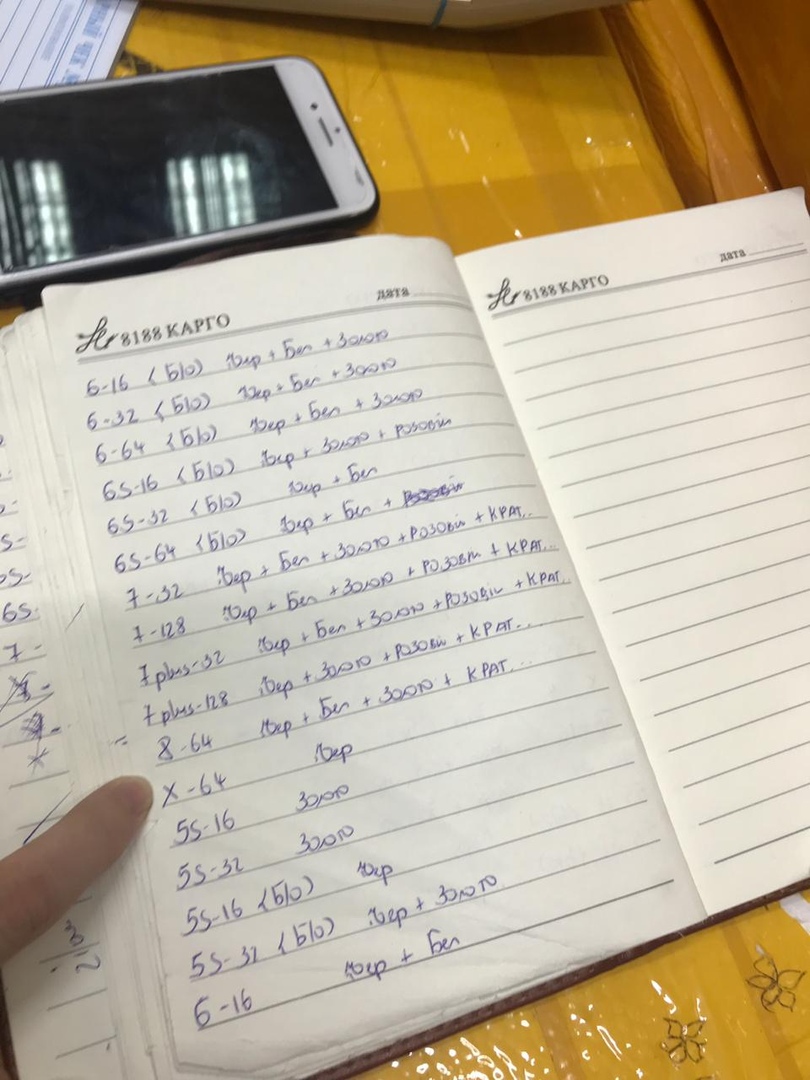 8188 КАРГО
дата
6-16 (Б/О) Чер + Бел + Золото
6-32 (Б/О) Чер + Бел + Золото
6-64 (Б/О) Чер + Бел + Золото
6S-16 (Б/О) Чер + Золото + РОЗОВЫЙ
6S-32 (Б/О) Чер + Бел
6S-64 (Б/О) Чер + Бел +
7-32 Чер + Бел + Золото + РОЗОВЫЙ + КРАС..
7-128 Чер + Бел + Золото + РОЗОВЫЙ + КРАС...
7plus-32 Чер + Бел + Золото + РОЗОВЫЙ + КРАС...
7plus-128 Чер + Золото + РОЗОВЫЙ + КРАС...
8-64 Чер + Бел + Золото + КРАС...
X-64 Чер
5S-16 Золото
5S-32 Золото
5S-16 (Б/О) Чер
5S-32 (Б/О) Чер + Золото
6-16 Чер + Бел
8188 КАРГО
дата
6S-
7-